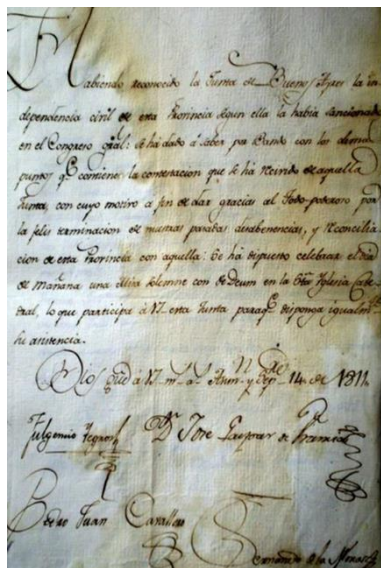 Habiendo reconocido la Junta de Buenos Ayres la in
dependencia civil de esta Provincia segun ella la habia sancionado
en el Congreso gral: se ha dado á saber por Bando con los demas
puntos qe. contiene la contestacion que se ha recivido de aquella
Junta, con cuyo motivo a fin de dar gracias al Todo-poderoso por
la feliz terminacion de nuestras pasadas desabenencias, y reconcilia
cion de esta Provincia con aquella: Se ha dispuesto celebrar el dia
de mañana una Misa solemne con te Deum en la Sta. Iglesia Cate
dral, lo que participa á V.S. esta Junta paraqe. disponga igualmte.
su asistencia.
Dios gue. á V.S. ms. as. Asumn. y Sepe. 14. de 1811.
Fulgencio Yegros
Dr. Jose Gaspar de Francia
Pedro Juan Cavallero
Fernando de la Mora